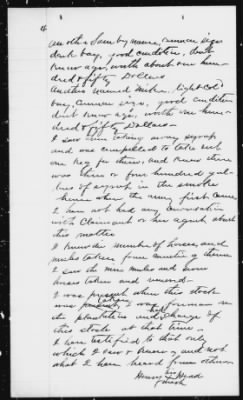 another Sumby mare, common size
dark bay, good condition, don't
know age, worth about one hun-
dred & fifty Dollars
Another named Mike, light col'
bay, common size, good condition
don't know age, worth one hun-
dred & fifty Dollars
I saw them taking away syrup
and was compelled to take out
one keg for them, and know there
was three or four hundred gal-
lons of syrup in the smoke
house when the army first came
I have not had any conversation
with Claimant or her agents about
this matter
I know the number of horses, and
mules taken from
I saw the mules and
horses taken and
I was present when this stock
was I was foreman on
the plantation & had charge of
this stock at that time.
I have testified to that only
which I saw & know, and not
what I have heard from others
Head